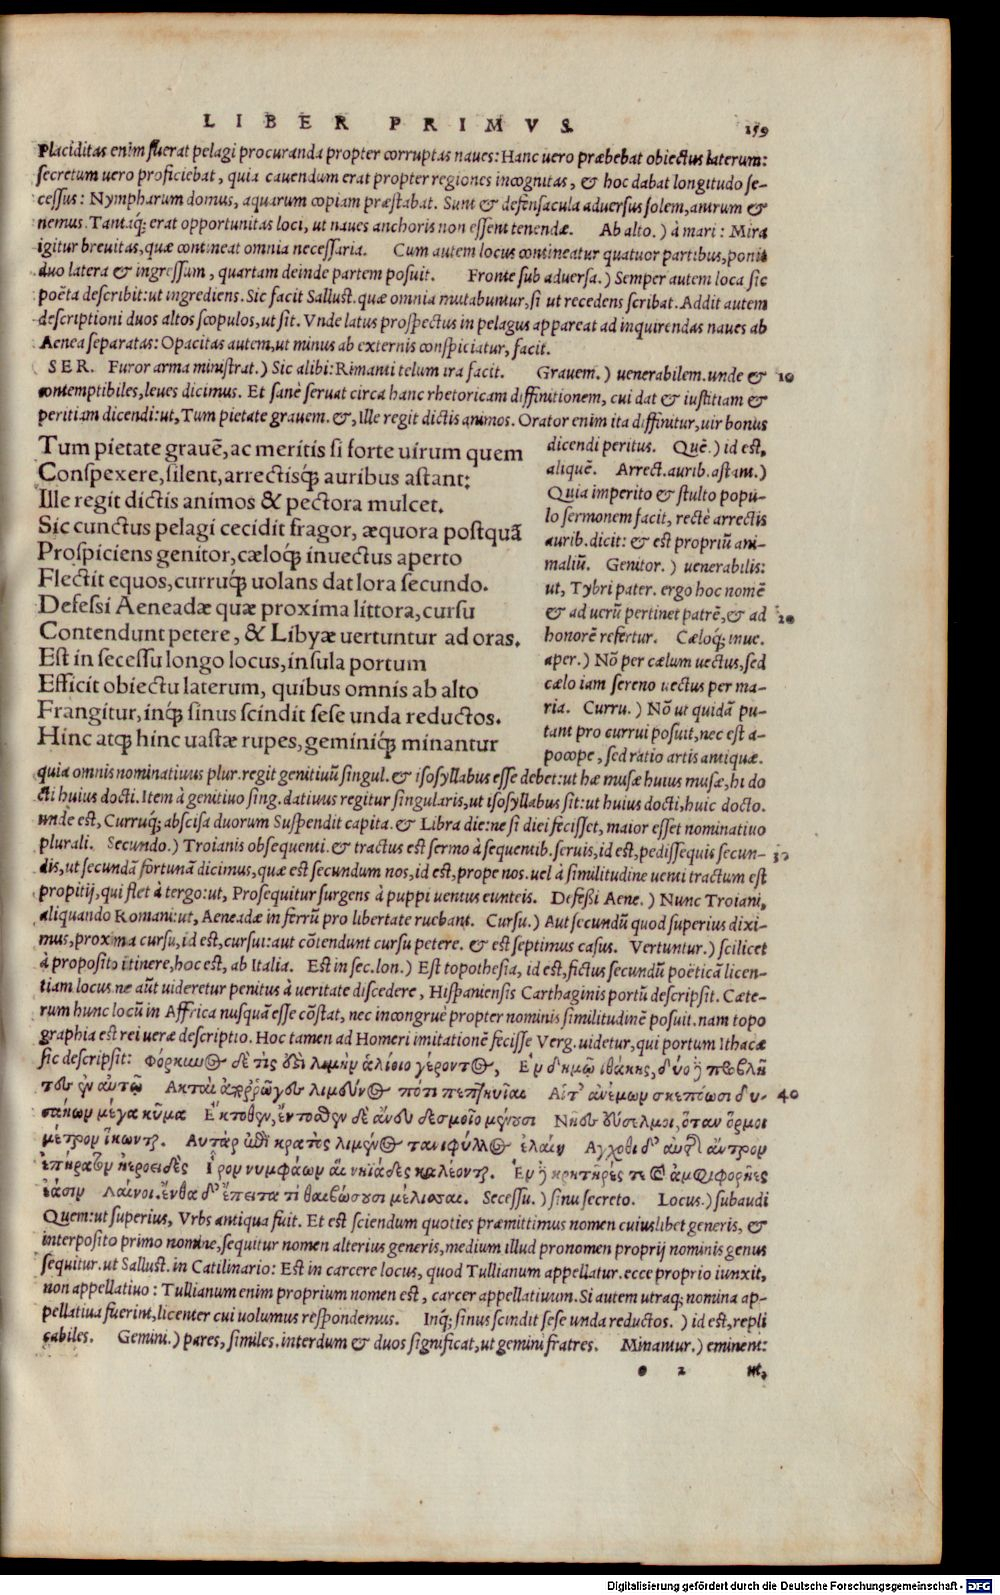 LIBER PRIMVS. 159
Placiditas enim fuerat pelagi procuranda propter corruptas naues: Hanc uero præbebat obiectus laterum:
secretum uero proficiebat, quia cauendum erat propter regiones incognitas, & hoc dabat longitudo se-
cessus: Nympharum domus, aquarum copiam præstabat. Sunt & defensacula aduersus solem, antrum &
nemus. Tantaq́; erat opportunitas loci, ut naues anchoris non essent tenendæ. Ab alto.) à mari: Mira
igitur breuitas, quæ contineat omnia necessaria. Cum autem locus contineatur quatuor partibus, ponit
duo latera & ingressum, quartam deinde partem posuit. Fronte sub aduersa.) Semper autem loca sic
poëta describit: ut ingrediens. Sic facit Sallust. quæ omnia mutabuntur, si ut recedens scribat. Addit autem
descriptioni duos altos scopulos, ut sit. Vnde latus prospectus in pelagus appareat ad inquirendas naues ab
Aenea separatas: Opacitas autem, ut minus ab externis conspiciatur, facit.
SER. Furor arma ministrat.) Sic alibi: Rimanti telum ira facit. Grauem.) uenerabilem. unde & 10
contemptibiles, leues dicimus. Et sanè seruat circa hanc rhetoricam diffinitionem, cui dat & iustitiam &
peritiam dicendi: ut, Tum pietate grauem. &, Ille regit dictis animos. Orator enim ita diffinitur, uir bonus
Tum pietate grauē, ac meritis si forte uirum quem
Conspexere, silent, arrectisq́; auribus astant:
Ille regit dictis animos & pectora mulcet.
Sic cunctus pelagi cecidit fragor, æquora postquã
Prospiciens genitor, cæloq́; inuectus aperto
Flectit equos, curruq́; uolans dat lora secundo.
Defessi Aeneadæ quæ proxima littora, cursu
Contendunt petere, & Libyæ uertuntur ad oras.
Est in secessu longo locus, insula portum
Efficit obiectu laterum, quibus omnis ab alto
Frangitur, inq́; sinus scindit sese unda reductos.
Hinc atq; hinc uastæ rupes, geminiq́; minantur
dicendi peritus. Quē.) id est,
aliquē. Arrect. aurib. astant.)
Quia imperito & stulto popu-
lo sermonem facit, rectè arrectis
aurib. dicit: & est propriū ani-
maliū. Genitor.) uenerabilis:
ut, Tybri pater. ergo hoc nomē
& ad uerū pertinet patrē, & ad 20
honorē refertur. Cæloq́; inue.
aper.) Nō per cælum uectus, sed
cælo iam sereno uectus per ma-
ria. Curru.) Nō ut quidā pu-
tant pro currui posuit, nec est a-
pocope, sed ratio artis antiquæ.
quia omnis nominatiuus plur. regit genitiuū singul. & isosyllabus esse debet: ut hæ musæ huius musæ, hi do
cti huius docti. Item à genitiuo sing. datiuus regitur singularis, ut isosyllabus sit: ut huius docti, huic docto.
unde est, Curruq́; abscisa duorum Suspendit capita. & Libra die: ne si diei fecisset, maior esset nominatiuo
plurali. Secundo.) Troianis obsequenti. & tractus est sermo à sequentib. seruis, id est, pedissequis secun- 30
dis, ut secundā fortunā dicimus, quæ est secundum nos, id est, prope nos. uel à similitudine uenti tractum est
propitij, qui flet à tergo: ut, Prosequitur surgens à puppi uentus eunteis. Defessi Aene.) Nunc Troiani,
aliquando Romani: ut, Aeneadæ in ferrū pro libertate ruebant. Cursu.) Aut secundū quod superius dixi-
mus, proxima cursu, id est, cursui: aut cōtendunt cursu petere. & est septimus casus. Vertuntur.) scilicet
à proposito itinere, hoc est, ab Italia. Est in sec. lon.) Est topothesia, id est, fictus secundū poëticā licen-
tiam locus. ne aūt uideretur penitus à ueritate discedere, Hispaniensis Carthaginis portū descripsit. Cæte-
rum hunc locū in Affrica nusquā esse cōstat, nec incongruè propter nominis similitudinē posuit. nam topo
graphia est rei ueræ descriptio. Hoc tamen ad Homeri imitationē fecisse Verg. uidetur, qui portum Ithacæ
sic descripsit: Φόρκυνος δέ τις ὅδε λιμὴν ἁλίοιο γέροντος, Ἐν δήμῳ ἰθάκης, δύο ἢ προβλῆ
τες ἐν αὐτῷ Ἀκταὶ ἀπορρῶγες λιμένος ποτὶ πεπτηυῖαι Αἵτ' ἀνέμων σκεπόωσι δυ- 40
σαήων μέγα κῦμα Ἔκτοθεν, ἔντοσθεν δὲ ἄνευ δεσμοῖο μένουσι Νῆες ἐύσελμοι, ὅταν ὅρμου
μέτρον ἵκωνται. Αὐτὰρ ἐπὶ κρατὸς λιμένος τανύφυλλος ἐλαίη Ἀγχόθι δ' αὐτῆς ἄντρον
ἐπήρατον ἠεροειδές Ἱρὸν νυμφάων αἳ νηϊάδες καλέονται. Ἐν ἢ κρητῆρές τε καὶ ἀμφιφορῆες
ἔασιν Λάϊνοι. ἔνθα δ' ἔπειτα τιθαιβώσσουσι μέλισσαι. Secessu.) sinu secreto. Locus.) subaudi
Quem: ut superius, Vrbs antiqua fuit. Et est sciendum quoties præmittimus nomen cuiuslibet generis, &
interposito primo nomine, sequitur nomen alterius generis, medium illud pronomen proprij nominis genus
sequitur. ut Sallust. in Catilinario: Est in carcere locus, quod Tullianum appellatur. ecce proprio iunxit,
non appellatiuo: Tullianum enim proprium nomen est, carcer appellatiuum. Si autem utraq; nomina ap-
pellatiua fuerint, licenter cui uolumus respondemus. Inq́; sinus scindit sese unda reductos.) id est, repli
cabiles. Gemini.) pares, similes. interdum & duos significat, ut gemini fratres. Minantur.) eminent:
o 2 ut,
Digitalisierung gefördert durch die Deutsche Forschungsgemeinschaft - DFG